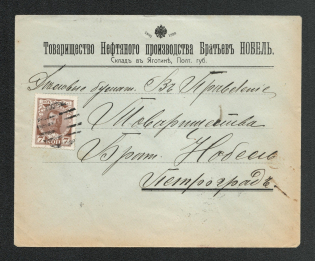 Товарищество Нефтяного производства Братьевъ НОБЕЛЬ.
Складъ въ Яготинѣ, Полт. губ.
Дѣловые бумаги. Въ Правленіе
Товарищества
Брат. Нобель
Петроградъ
7 7